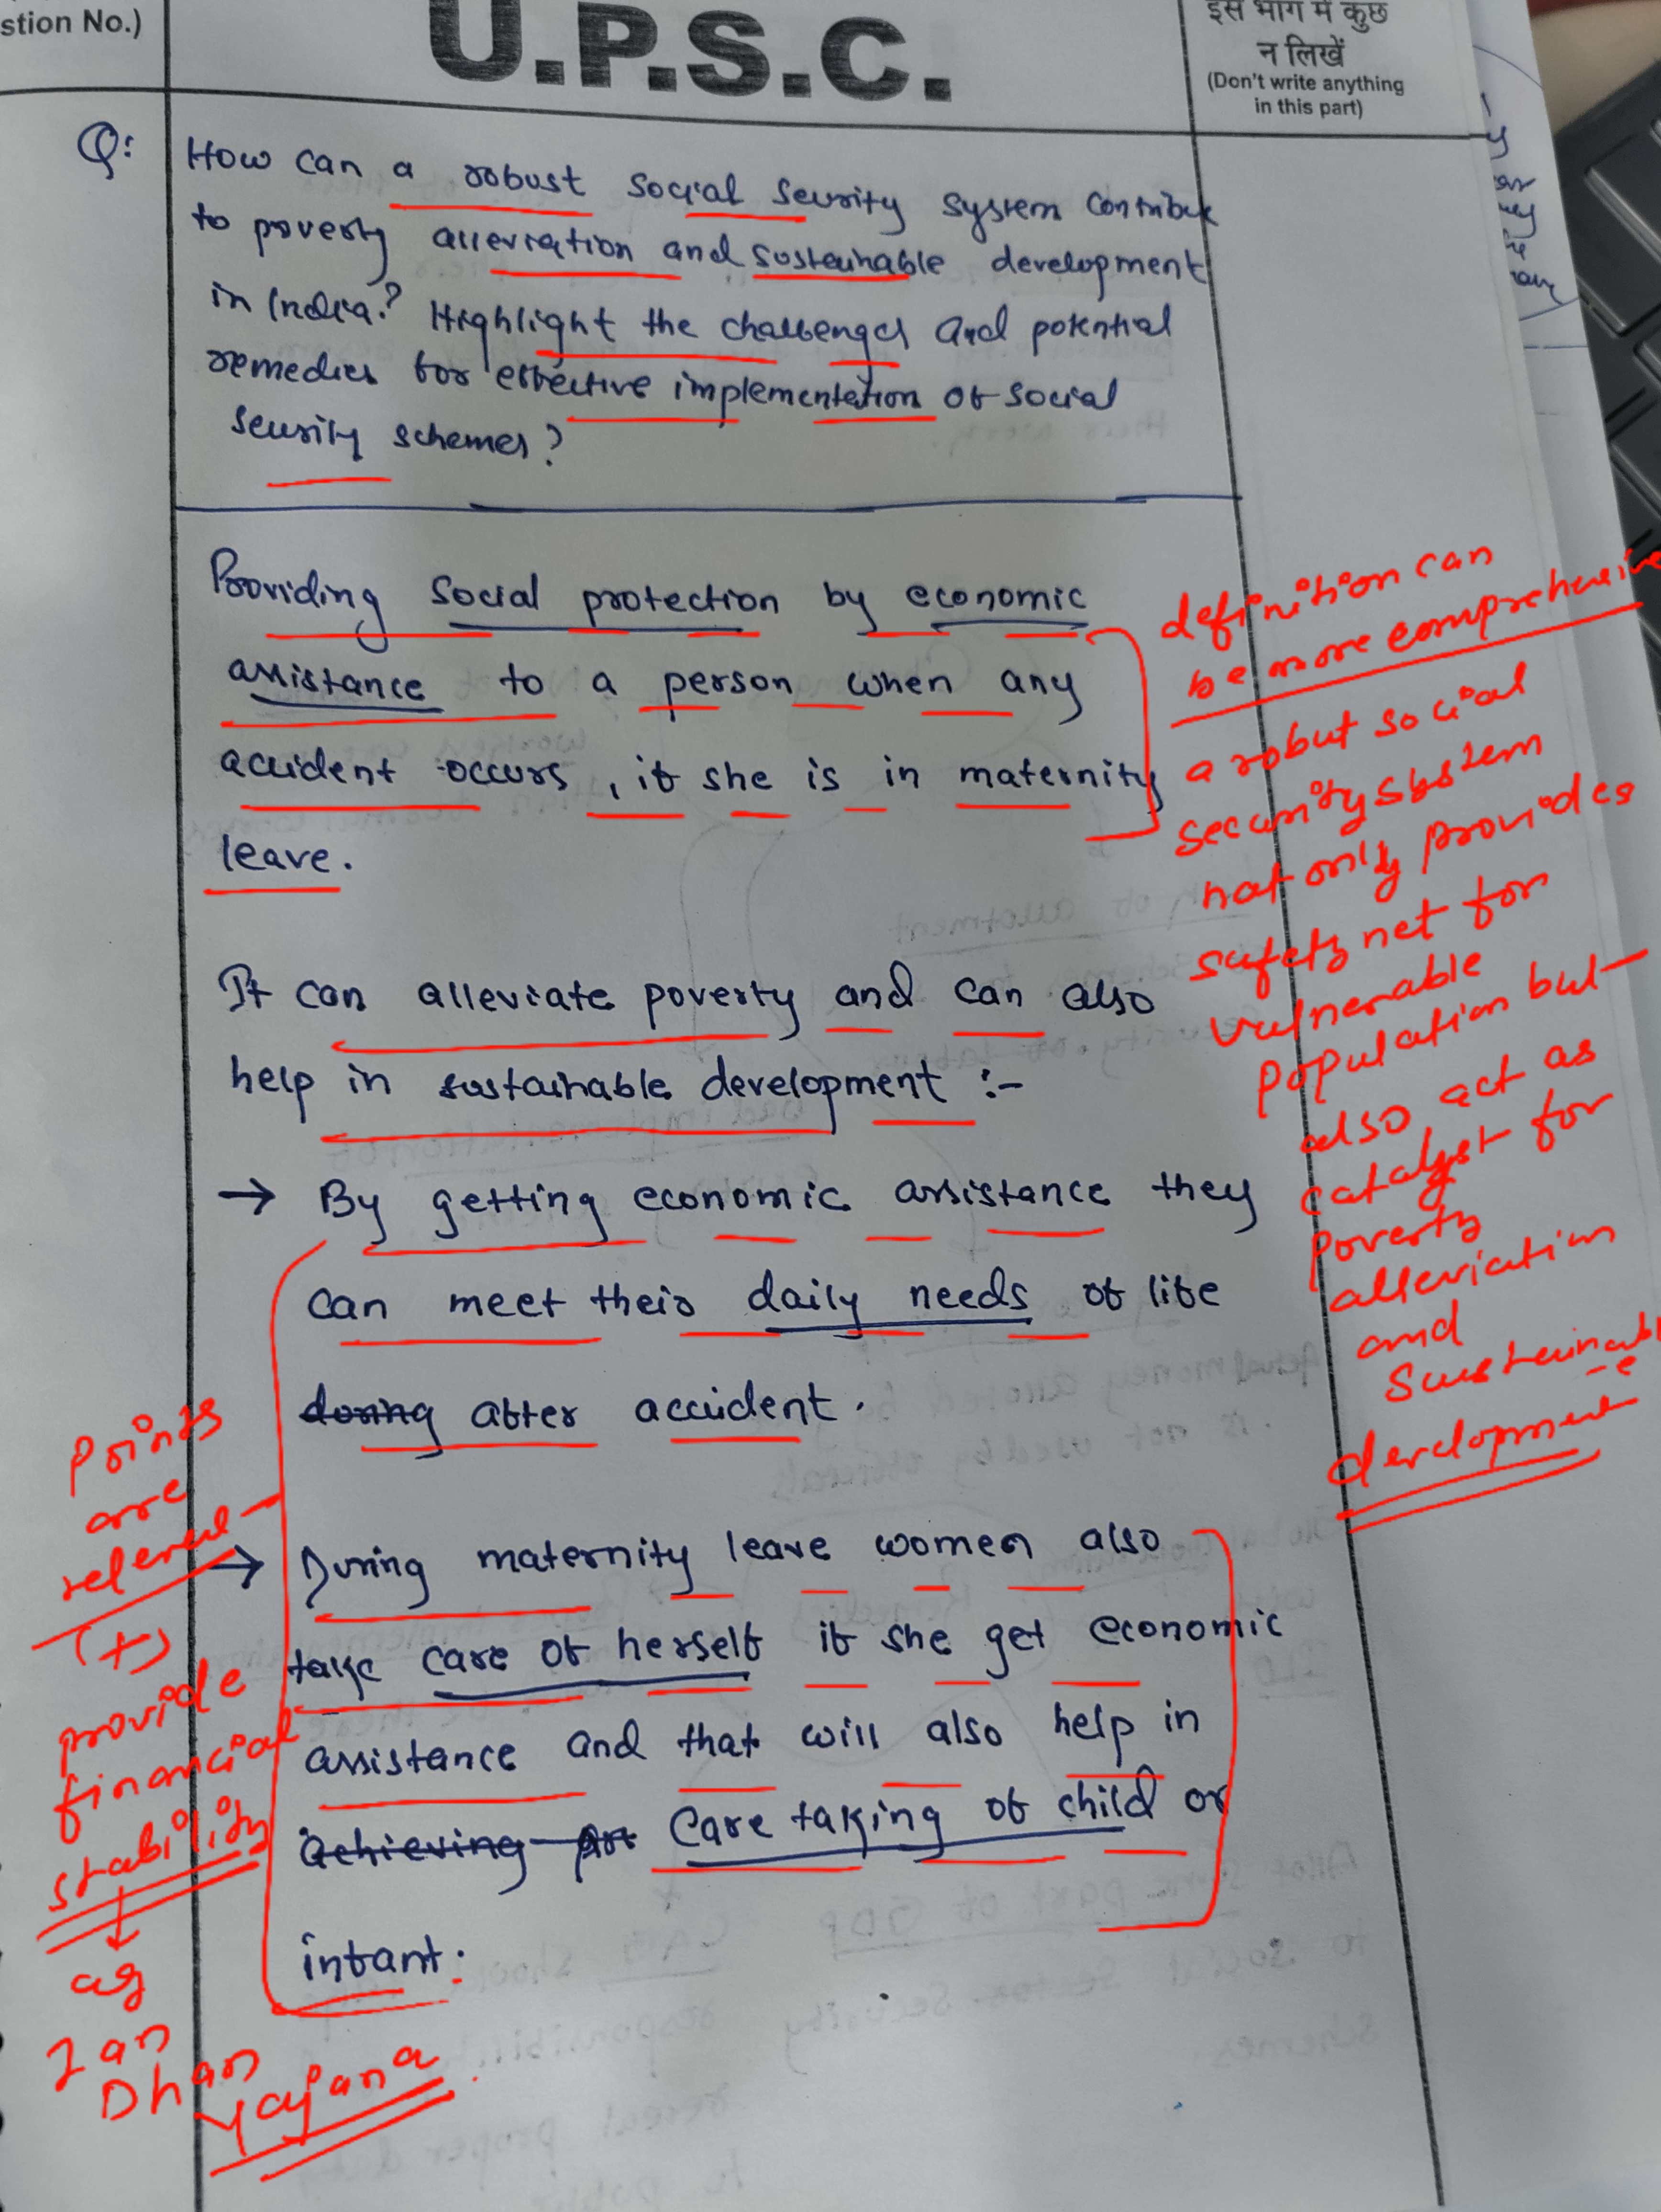 stion No.)
U.P.S.C.
इस भाग में कुछ
न लिखें
(Don't write anything
in this part)
Q: How can a robust social security system contribute
to poverty alleviation and sustainable development
in India? Highlight the challenges and potential
remedies for effective implementation of social
security schemes?
Providing social protection by economic
assistance to a person when any
accident occurs, if she is in maternity
leave.
definition can
be more comprehensive
a robut social
security system
not only provides
safety net for
vulnerable
population but
also act as
catalyst for
poverty
alleviation
and
Sustainabl
-e
development
It can alleviate poverty and can also
help in sustainable development :-
→ By getting economic assistance they
can meet their daily needs of life
doring after accident.
→ During maternity leave women also
take care of herself if she get economic
assistance and that will also help in
achieving care taking of child or
infant.
Points
are
relevel
(+)
provide
financial
stability
↓
eg
Jan
Dhan
Yojana